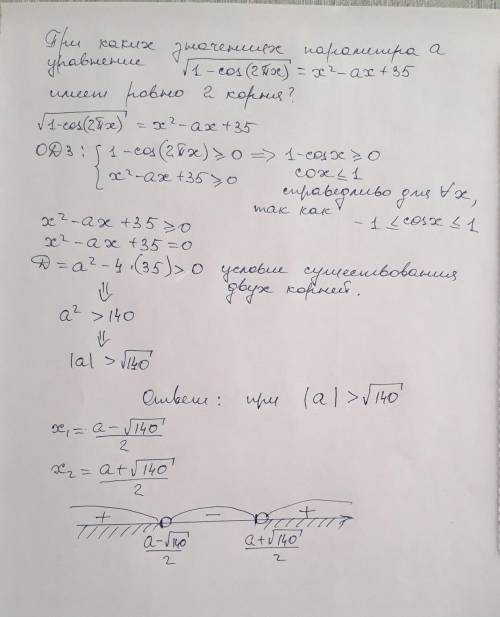 При каких значениях параметра a
уравнение √(1-cos(2πx)) = x²-ax+35
имеет ровно 2 корня?
√(1-cos(2πx)) = x²-ax+35
ОДЗ: { 1-cos(2πx) ⩾ 0 => 1-cosx ⩾ 0
x²-ax+35 ⩾ 0 cosx ⩽ 1
справедливо для ∀x,
так как
-1 ⩽ cosx ⩽ 1
x²-ax+35 ⩾ 0
x²-ax+35 = 0
D = a²-4·(35) > 0 условие существования
двух корней.
⇓
a² > 140
⇓
|a| > √140
Ответ: при |a| > √140
x₁ = (a-√140)/2
x₂ = (a+√140)/2
+ - +
(a-√140)/2 (a+√140)/2